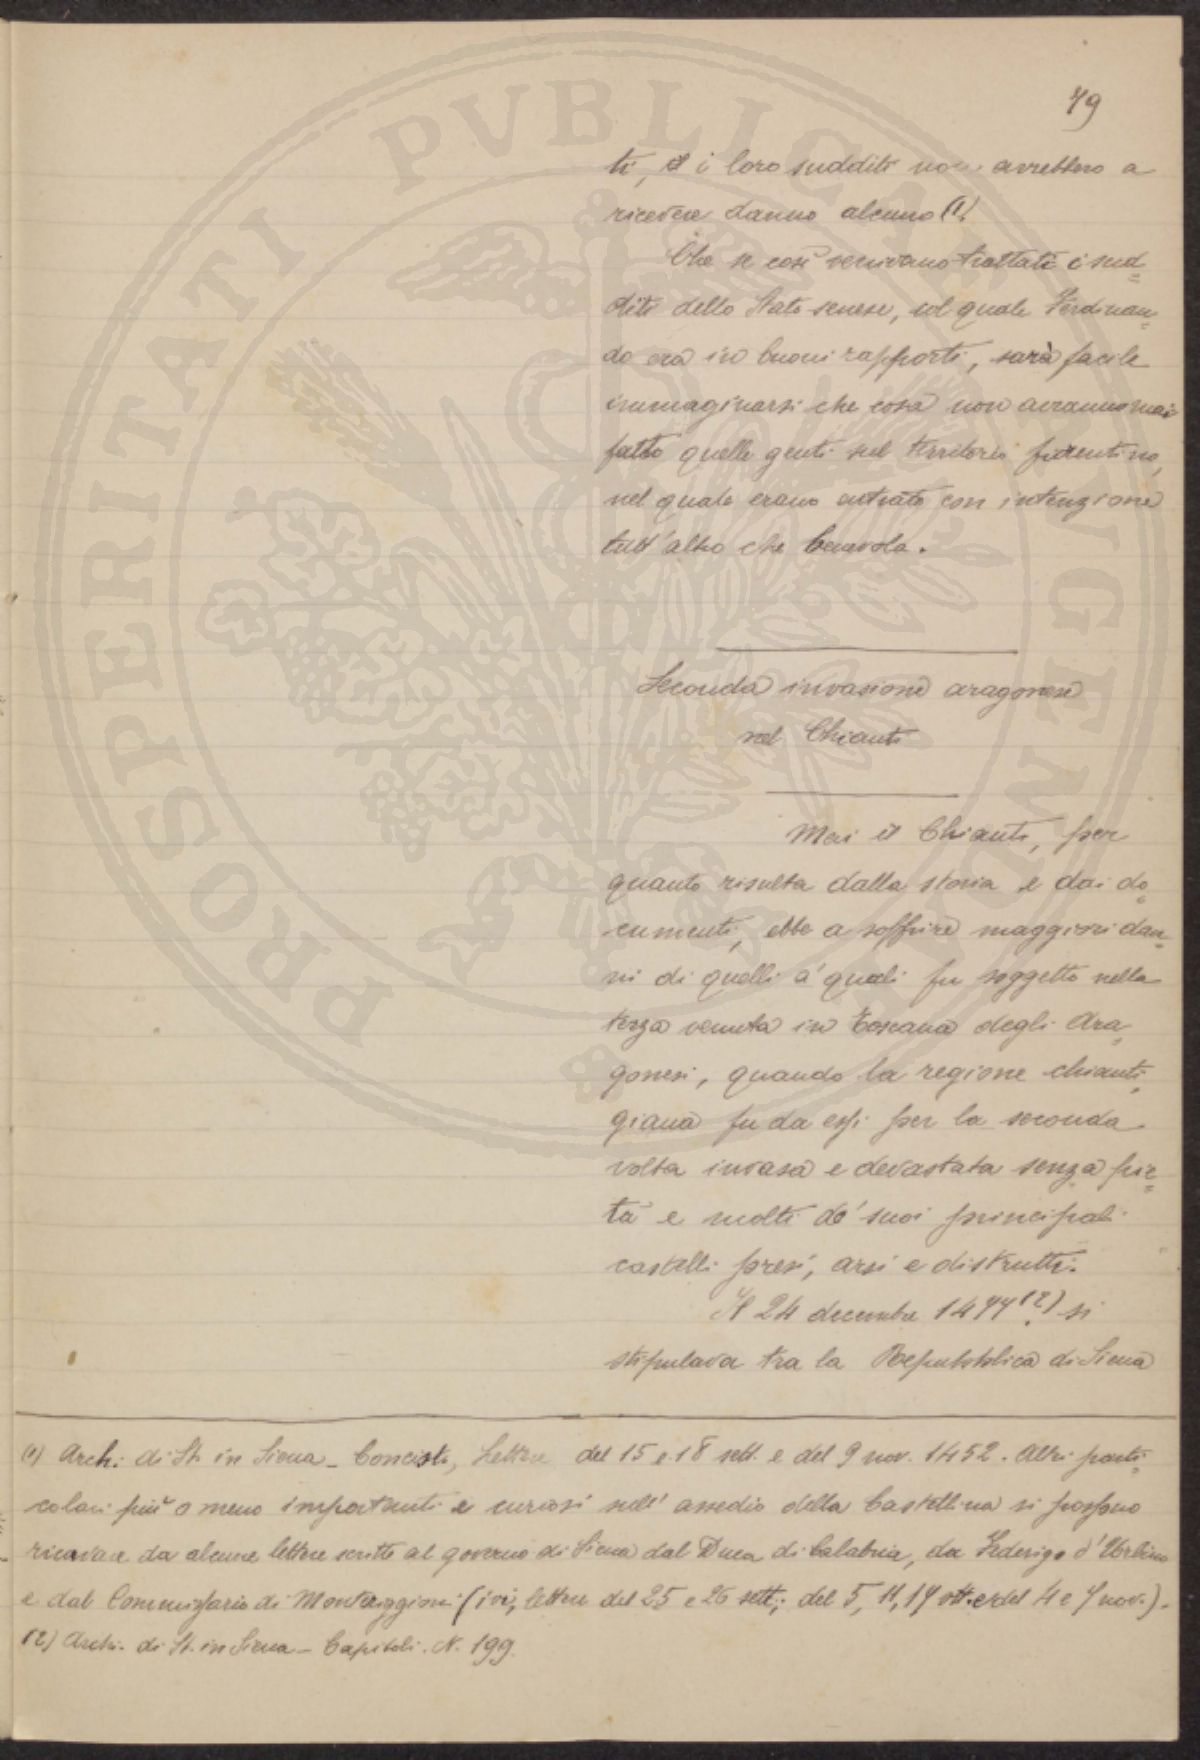 79
ti, e i loro sudditi non avrebbero a
ricevere danno alcuno (1).
Che se così venivano trattati i sud=
diti dello Stato senese, col quale Ferdinan=
do era in buoni rapporti, sarà facile
immaginarsi che cosa non avranno mai
fatto quelle genti sul territorio fiorentino,
nel quale erano entrate con intenzione
tutt'altro che benevola.
Seconda invasione aragonese
nel Chianti
Mai il Chianti, per
quanto risulta dalla storia e dai do=
cumenti, ebbe a soffrire maggiori dan=
ni di quelli a' quali fu soggetto nella
terza venuta in Toscana degli Ara=
gonesi, quando la regione chianti=
giana fu da essi per la seconda
volta invasa e devastata senza pie=
tà e molti de' suoi principali
castelli presi, arsi e distrutti.
Il 24 decembre 1477 (2) si
stipulava tra la Repubblica di Siena
(1) Arch. di St. in Siena - Concist., Lettere del 15 e 18 sett. e del 9 nov. 1452. Altri parti=
colari più o meno importanti e curiosi sull' assedio della Castellina si possono
ricavare da alcune lettere scritte al governo di Siena dal Duca di Calabria, da Federigo d'Urbino
e dal Commissario di Monteriggioni (ivi, lettere del 25 e 26 sett.; del 5, 11, 17 ott. e del 4 e 7 nov.).
(2) Arch. di St. in Siena - Capitoli. N. 199.
PROSPERITATI PVBLICAE AVGENDAE